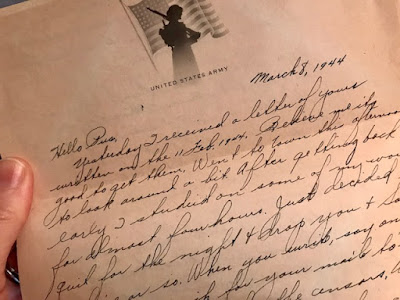 UNITED STATES ARMY
March 8, 1944
Hello Sus,
Yesterday I received a letter of yours
written on the 11 Feb. 1944. Believe me its
good to get them. Went to town this afternoon
to look around a bit. After getting back
early I studied on some of my wor
for almost four hours. Just decided
quit for the night & drop you & So
or so. When you write, say on
k for your mail to
the censors, W